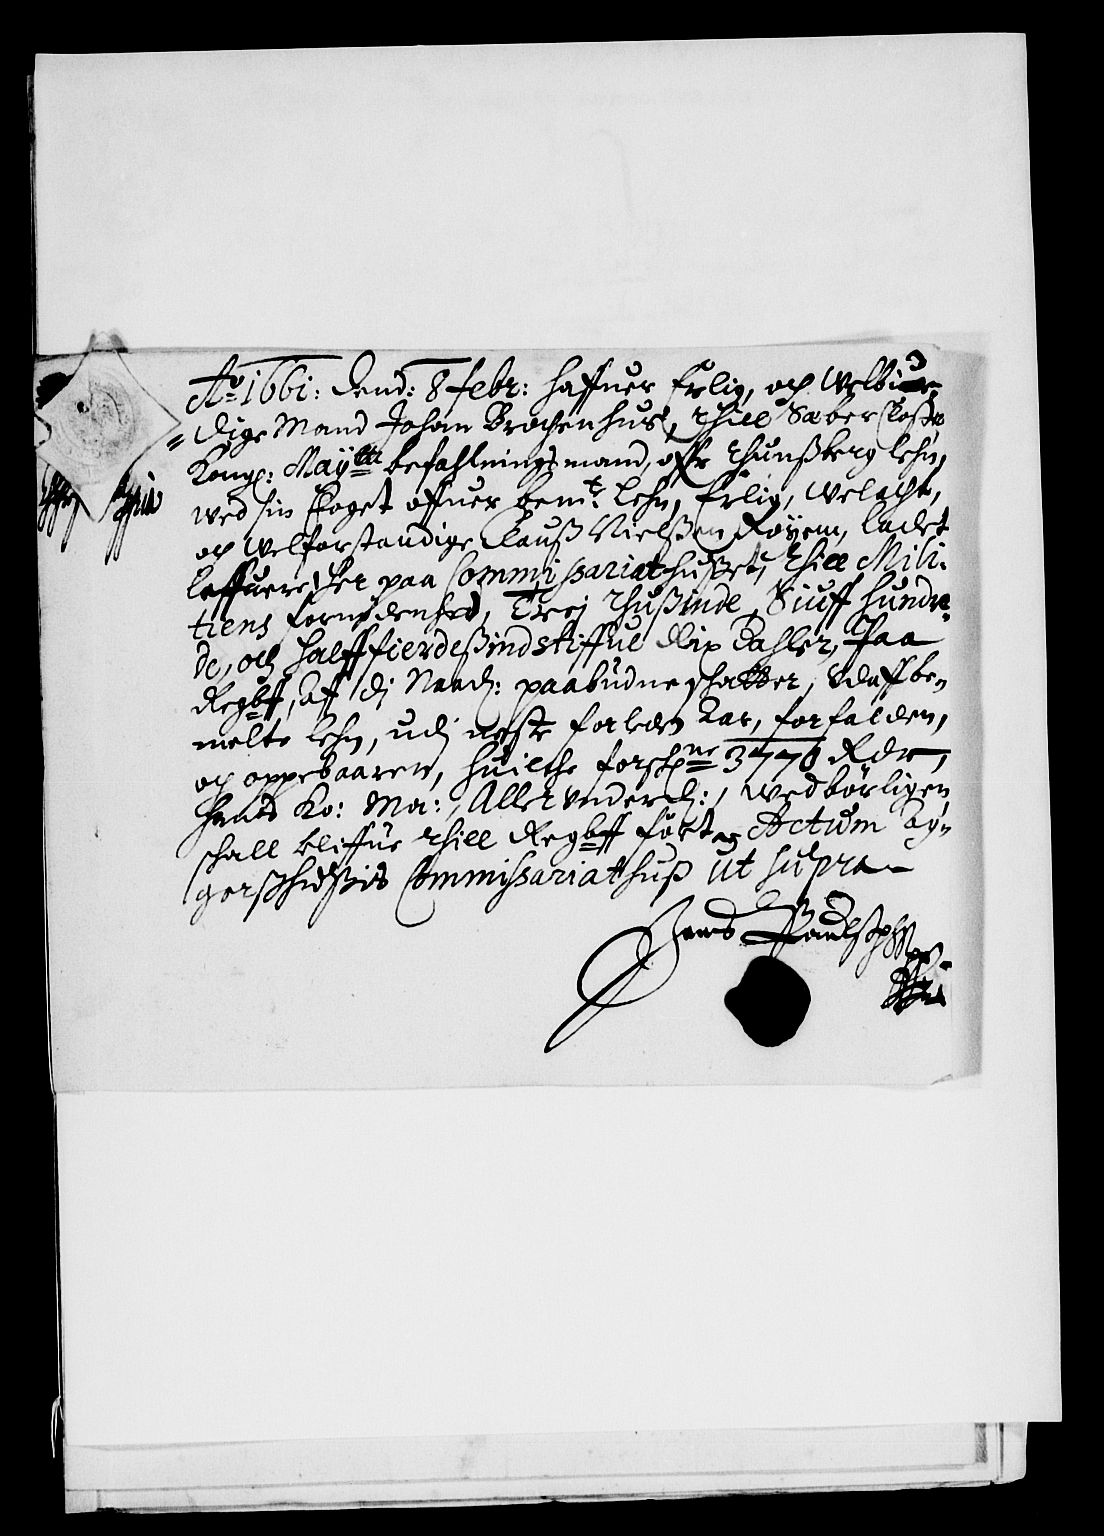 Ao 1661: Dend: 8 febr: haffuer Erlig, och Welbiur-
dige Mand Johan Brochenhus, thill Sæber Closter
Kongl: Maytts befahlningsmand, offr Thunßberg lehn,
wed sin Foget offuer bemte lehn, Erlig, Welacht,
och Welforstandige Clauß Nielßen Røyem, ladet
leffuere her paa Commissariathußet, thill Mili-
tiens fornødenhed, Trej thußinde, Siuff hundre-
de, och halfffierdeßindstiffue Rix Dahler, Paa
Regbff, aff di Naad: paabudne schatter, Udaff be-
melte lehn, udj neste forleden Aar, forfalden,
och oppebaaren, huilche forschne 3770 Rdr,
hans Ko: Ma: Aller underd:, wedbørligen
schall bliffue thill Regbffført, Actum Ag-
gerßhußis Commissariathuß ut supra
Jens Poulßen